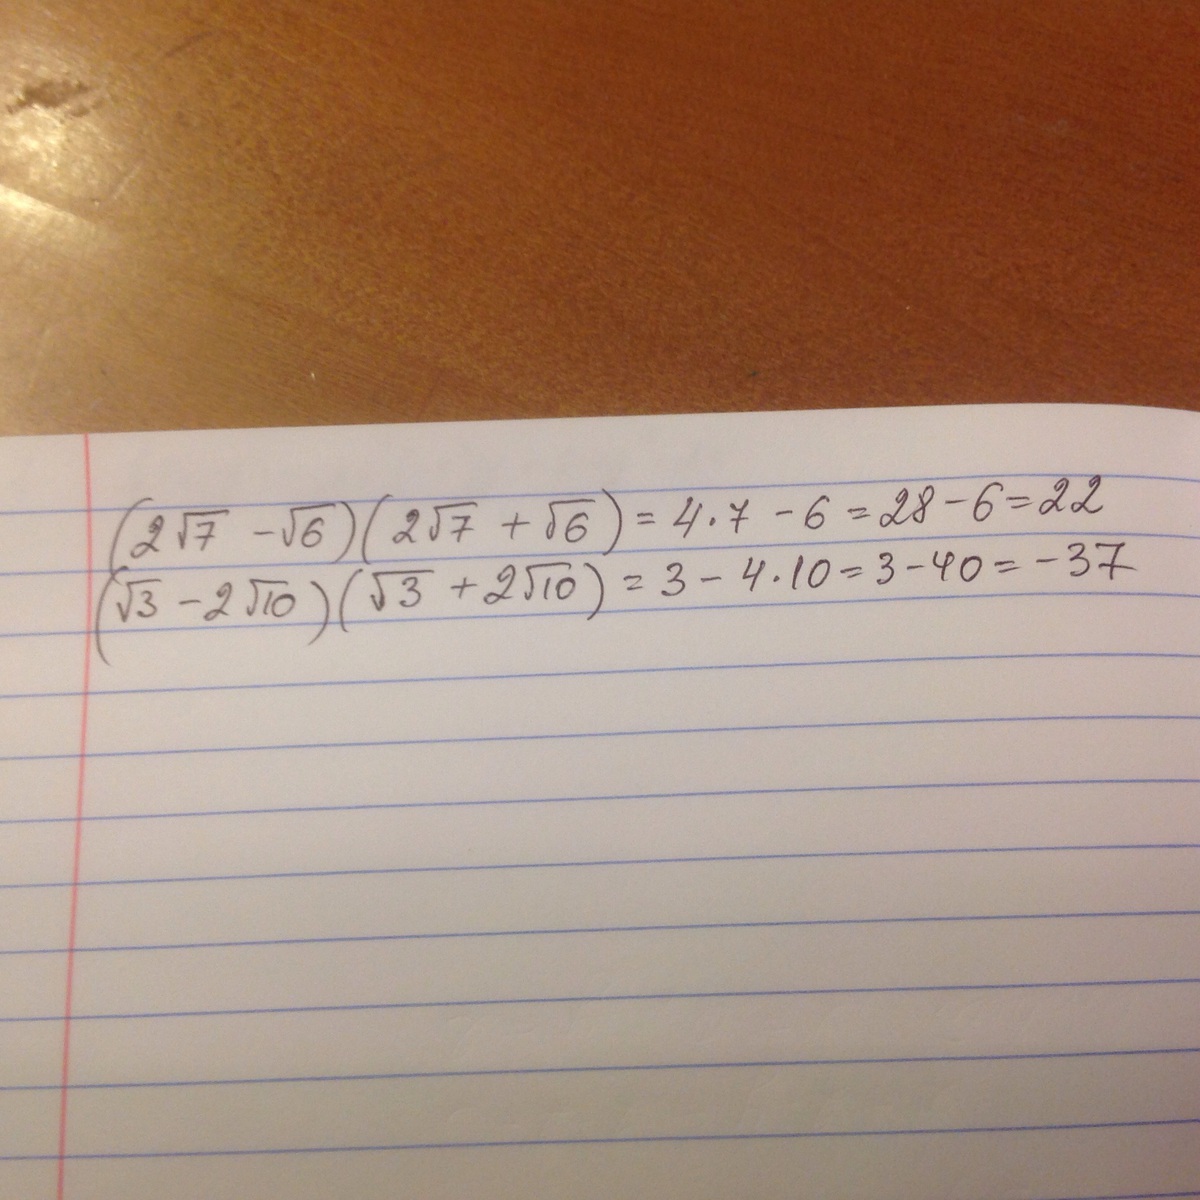 (2√7 - √6)(2√7 + √6) = 4·7 - 6 = 28 - 6 = 22
(√3 - 2√10)(√3 + 2√10) = 3 - 4·10 = 3 - 40 = -37